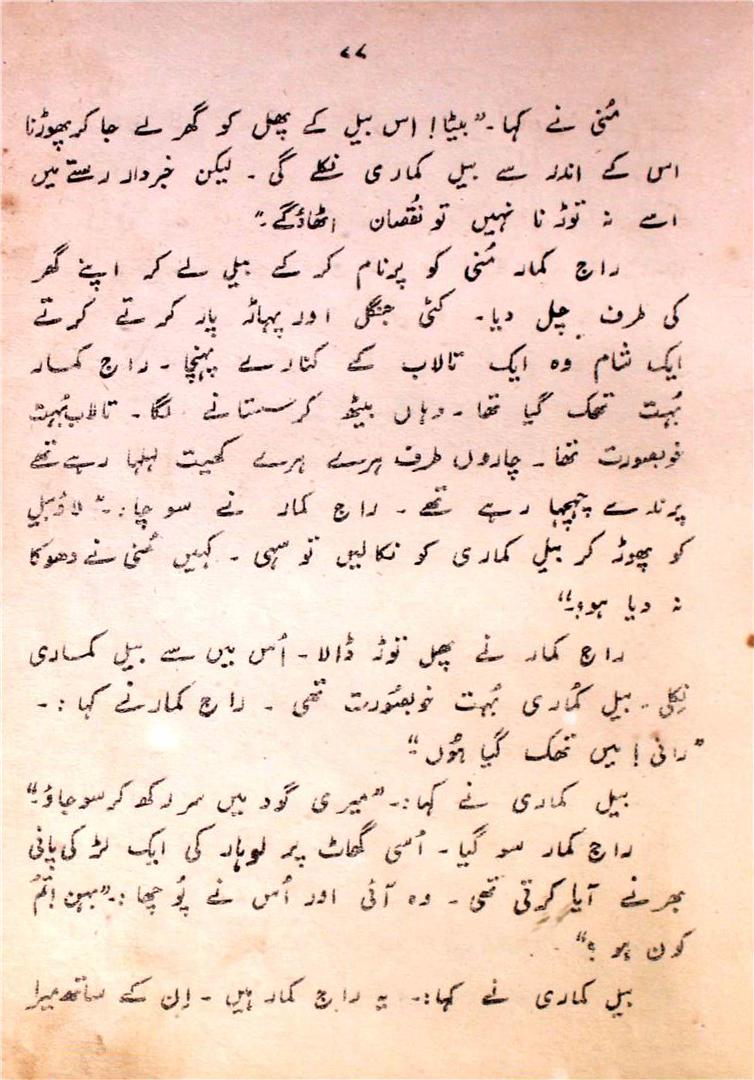 ۷۷
مُنی نے کہا۔ ”بیٹا! اس بیل کے پھل کو گھر لے جا کر پھوڑنا
اس کے اندر سے بیل کماری نکلے گی۔ لیکن خبردار رستے میں
اسے نہ توڑنا نہیں تو نقُصان اٹھاؤگے۔“
راج کمار مُنی کو پرنام کر کے بیل لے کر اپنے گھر
کی طرف چل دیا۔ کئی جنگل اور پہاڑ پار کرتے کرتے
ایک شام وہ ایک تالاب کے کنارے پہنچا۔ راج کمار
بُہت تھک گیا تھا۔ وہاں بیٹھ کر سستانے لگا۔ تالاب بُہت
خوبصورت تھا۔ چاروں طرف ہرے ہرے کھیت لہلہا رہے تھے
پرندے چہچہا رہے تھے۔ راج کمار نے سوچا:۔ ”لاؤ بیل
کو پھوڑ کر بیل کماری کو نکالیں تو سہی۔ کہیں مُنی نے دھوکا
نہ دیا ہو؟۔“
راج کمار نے پھل توڑ ڈالا۔ اُس میں سے بیل کماری
نِکلی۔ بیل کُماری بُہت خوبصُورت تھی۔ راج کمار نے کہا:۔
”رانی! میں تھک گیا ہُوں۔“
بیل کماری نے کہا:۔ ”میری گود میں سر رکھ کر سو جاؤ۔“
راج کمار سو گیا۔ اُسی گھاٹ پر لوہار کی ایک لڑکی پانی
بھرنے آیا کرتی تھی۔ وہ آئی اور اُس نے پُوچھا:۔ ”بہن! تُم
کون ہو؟“
بیل کماری نے کہا:۔ یہ راج کمار ہیں۔ اِن کے ساتھ میرا